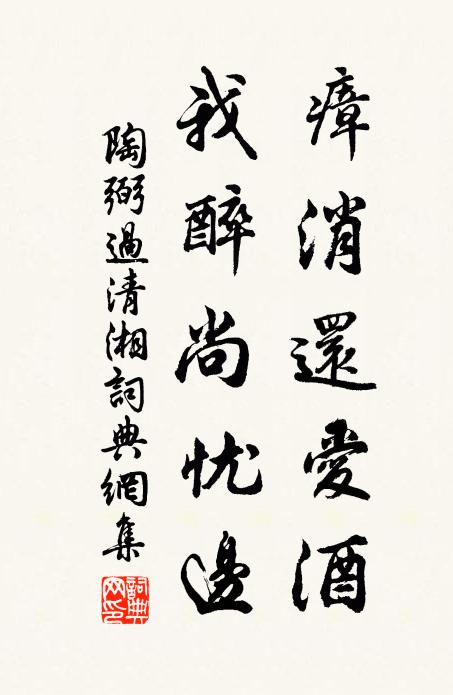 瘴消還愛酒
我醉尚忧邊
陶弼過清湘詞典網集
詞典网印